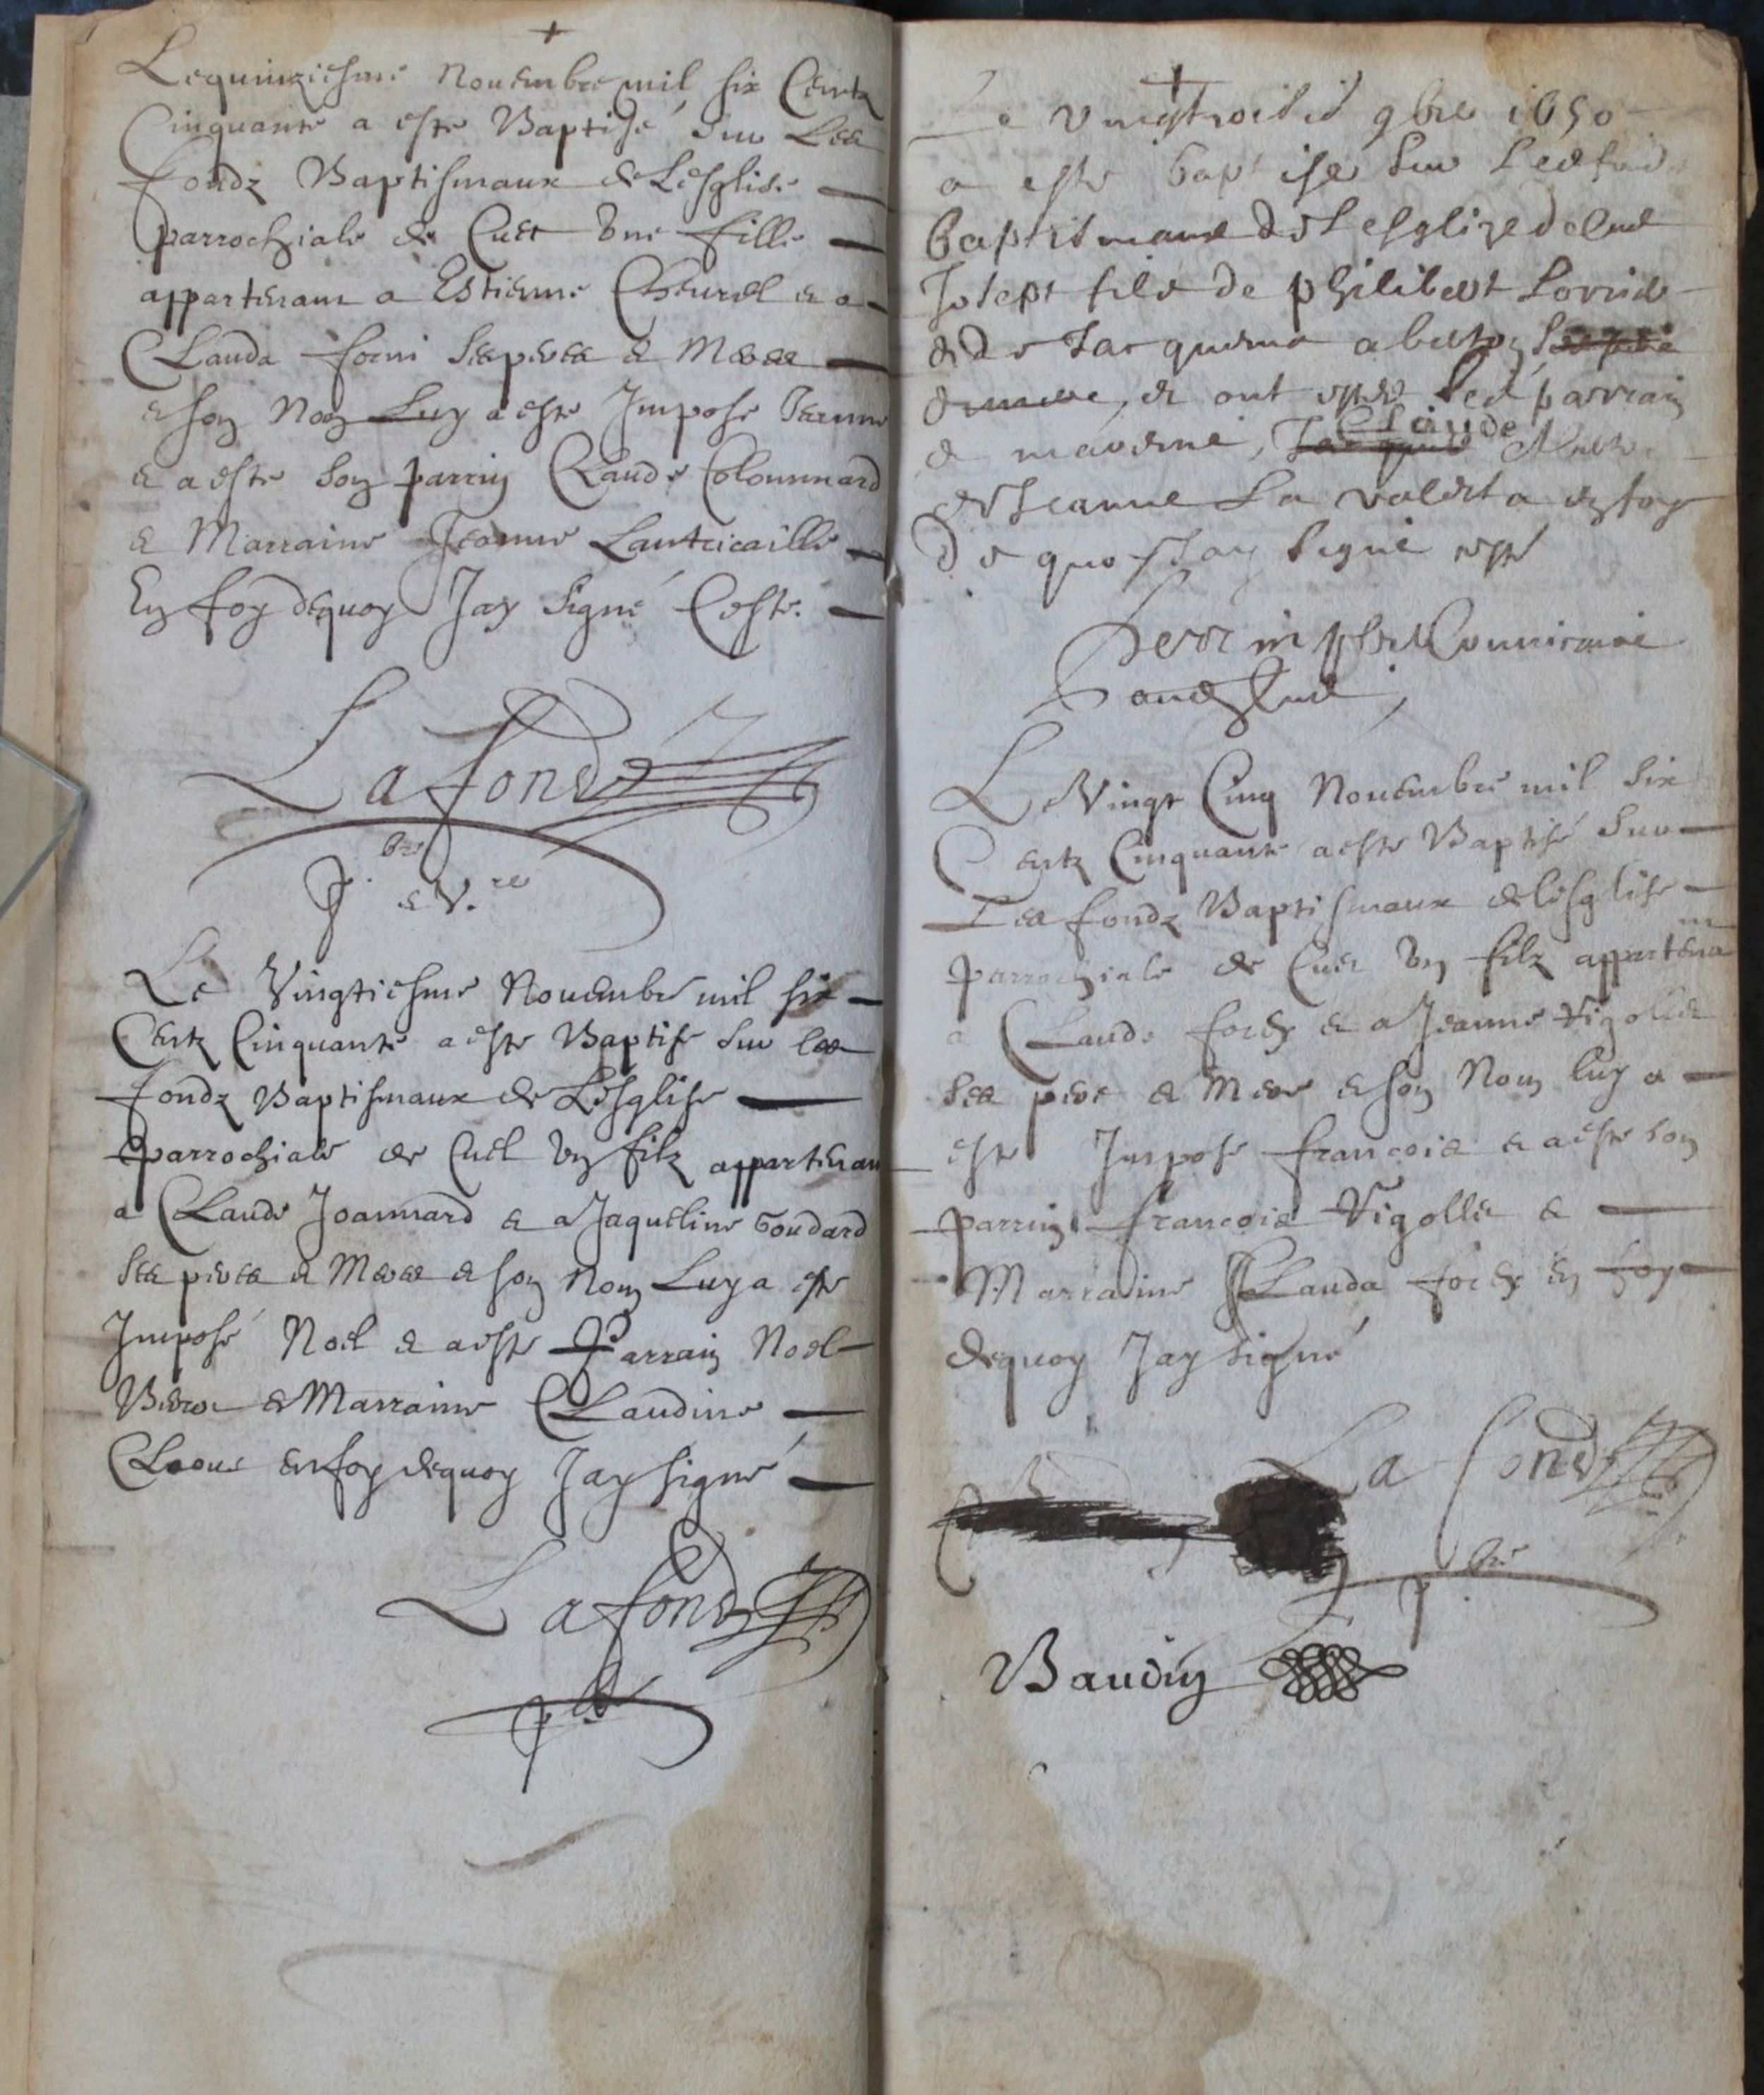 Le quinziesme Nouembre mil six Centz
Cinquante a este Baptisé sur Les
fondz Baptismaux de Lesglise
parrochiale de Cuet Une fille
appartenant a Estienne Cheurel & a
Clauda forni Ses peres & Meres
& son Nom Luy a este Imposé
& a este son parrin Claude Colonnard
& Marraine Jeanne
En foy dequoy Jay Signé Ceste.
Lafond
pbre & V.re
Le Vingtiesme Nouembre mil six
Centz Cinquante a este Baptise sur les
fondz Baptismaux de Lesglise
parrochiale de Cuet Un filz appartenan
a Claude Joannard & a Jaqueline Goudard
Ses peres & Meres & son Nom Luy a este
Imposé Noel & a este Parrain Noel
& Marraine Claudine
en foy dequoy Jay signé
Lafond
pbre
Le vingtroisie 9bre 1650
a este baptise sur Les fond
baptismaux de Lesglize de Cuet
Josept fils de philibert
& de Jacquema
& ont estes Les parrain
& marenne, Claude
et Jeanne La en foy
de quoy Jay signe
Le Vingt Cinq Nouembre mil Six
Centz Cinquante a este Baptisé Sur
Les fondz Baptismaux de lesglise
parrochiale de Cuet Un filz appartenant
a Claude forex & a Jeanne Vigollet
Ses pere & Mere & son Nom luy a
este Imposé francois & a este son
parrin francois Vigollet &
Marraine Clauda forex En foy
dequoy Jay signé
La fond
pbre
Baudin